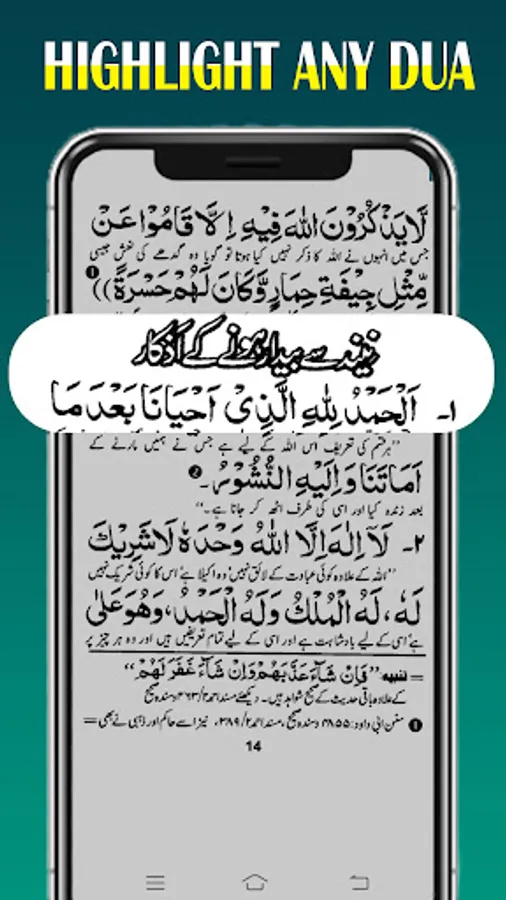 HIGHLIGHT ANY DUA
لَّا يَذْكُرُوْنَ اللّٰهَ فِيْهِ اِلَّا قَامُوْا عَنْ
جس میں انہوں نے اللہ کا ذکر نہیں کیا ہوتا تو گویا وہ گدھے کی نعش جیسی
مِّثْلِ جِيْفَةِ حِمَارٍ وَّكَانَ لَهُمْ حَسْرَةً)) ❶
نیند سے بیدار ہونے کے اذکار
۱۔ اَلْحَمْدُ لِلّٰهِ الَّذِيْ اَحْيَانَا بَعْدَ مَا
’’ہر قسم کی تعریف اس اللہ کے لیے ہے جس نے ہمیں مارنے کے
اَمَاتَنَا وَاِلَيْهِ النُّشُوْرُ۔ ❷
بعد زندہ کیا اور اسی کی طرف اٹھ کر جانا ہے۔‘‘
۲۔ لَآ اِلٰهَ اِلَّا اللّٰهُ وَحْدَهٗ لَا شَرِيْكَ
’’اللہ کے علاوہ کوئی عبادت کے لائق نہیں‘ وہ اکیلا ہے‘ اس کا کوئی شریک نہیں
لَهٗ، لَهُ الْمُلْكُ وَلَهُ الْحَمْدُ، وَهُوَ عَلٰى
ہے‘ اسی کے لیے بادشاہت ہے اور اسی کے لیے تمام تعریفیں ہیں اور وہ ہر چیز پر
= تنبیہ ’’فَاِنْ شَآءَ عَذَّبَهُمْ وَاِنْ شَآءَ غَفَرَ لَهُمْ‘‘
کے علاوہ باقی حدیث کے صحیح شواہد ہیں۔ دیکھئے مسند احمد ۲/ ۴۶۳ وسندہ صحیح
❶ سنن ابی داود: ۴۸۵۵ وسندہ صحیح، مسند احمد ۲/ ۳۸۹، نیز اسے حاکم اور ذہبی نے بھی =
14